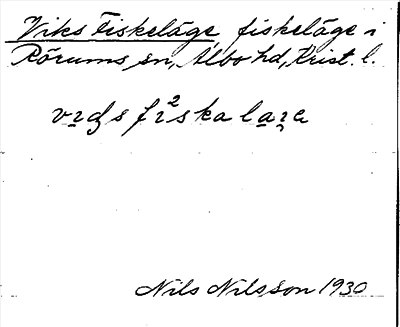 Viks Fiskeläge, fiskeläge i
Rörums sn, Albo hd, Krist. l.
Nils Nilsson 1930